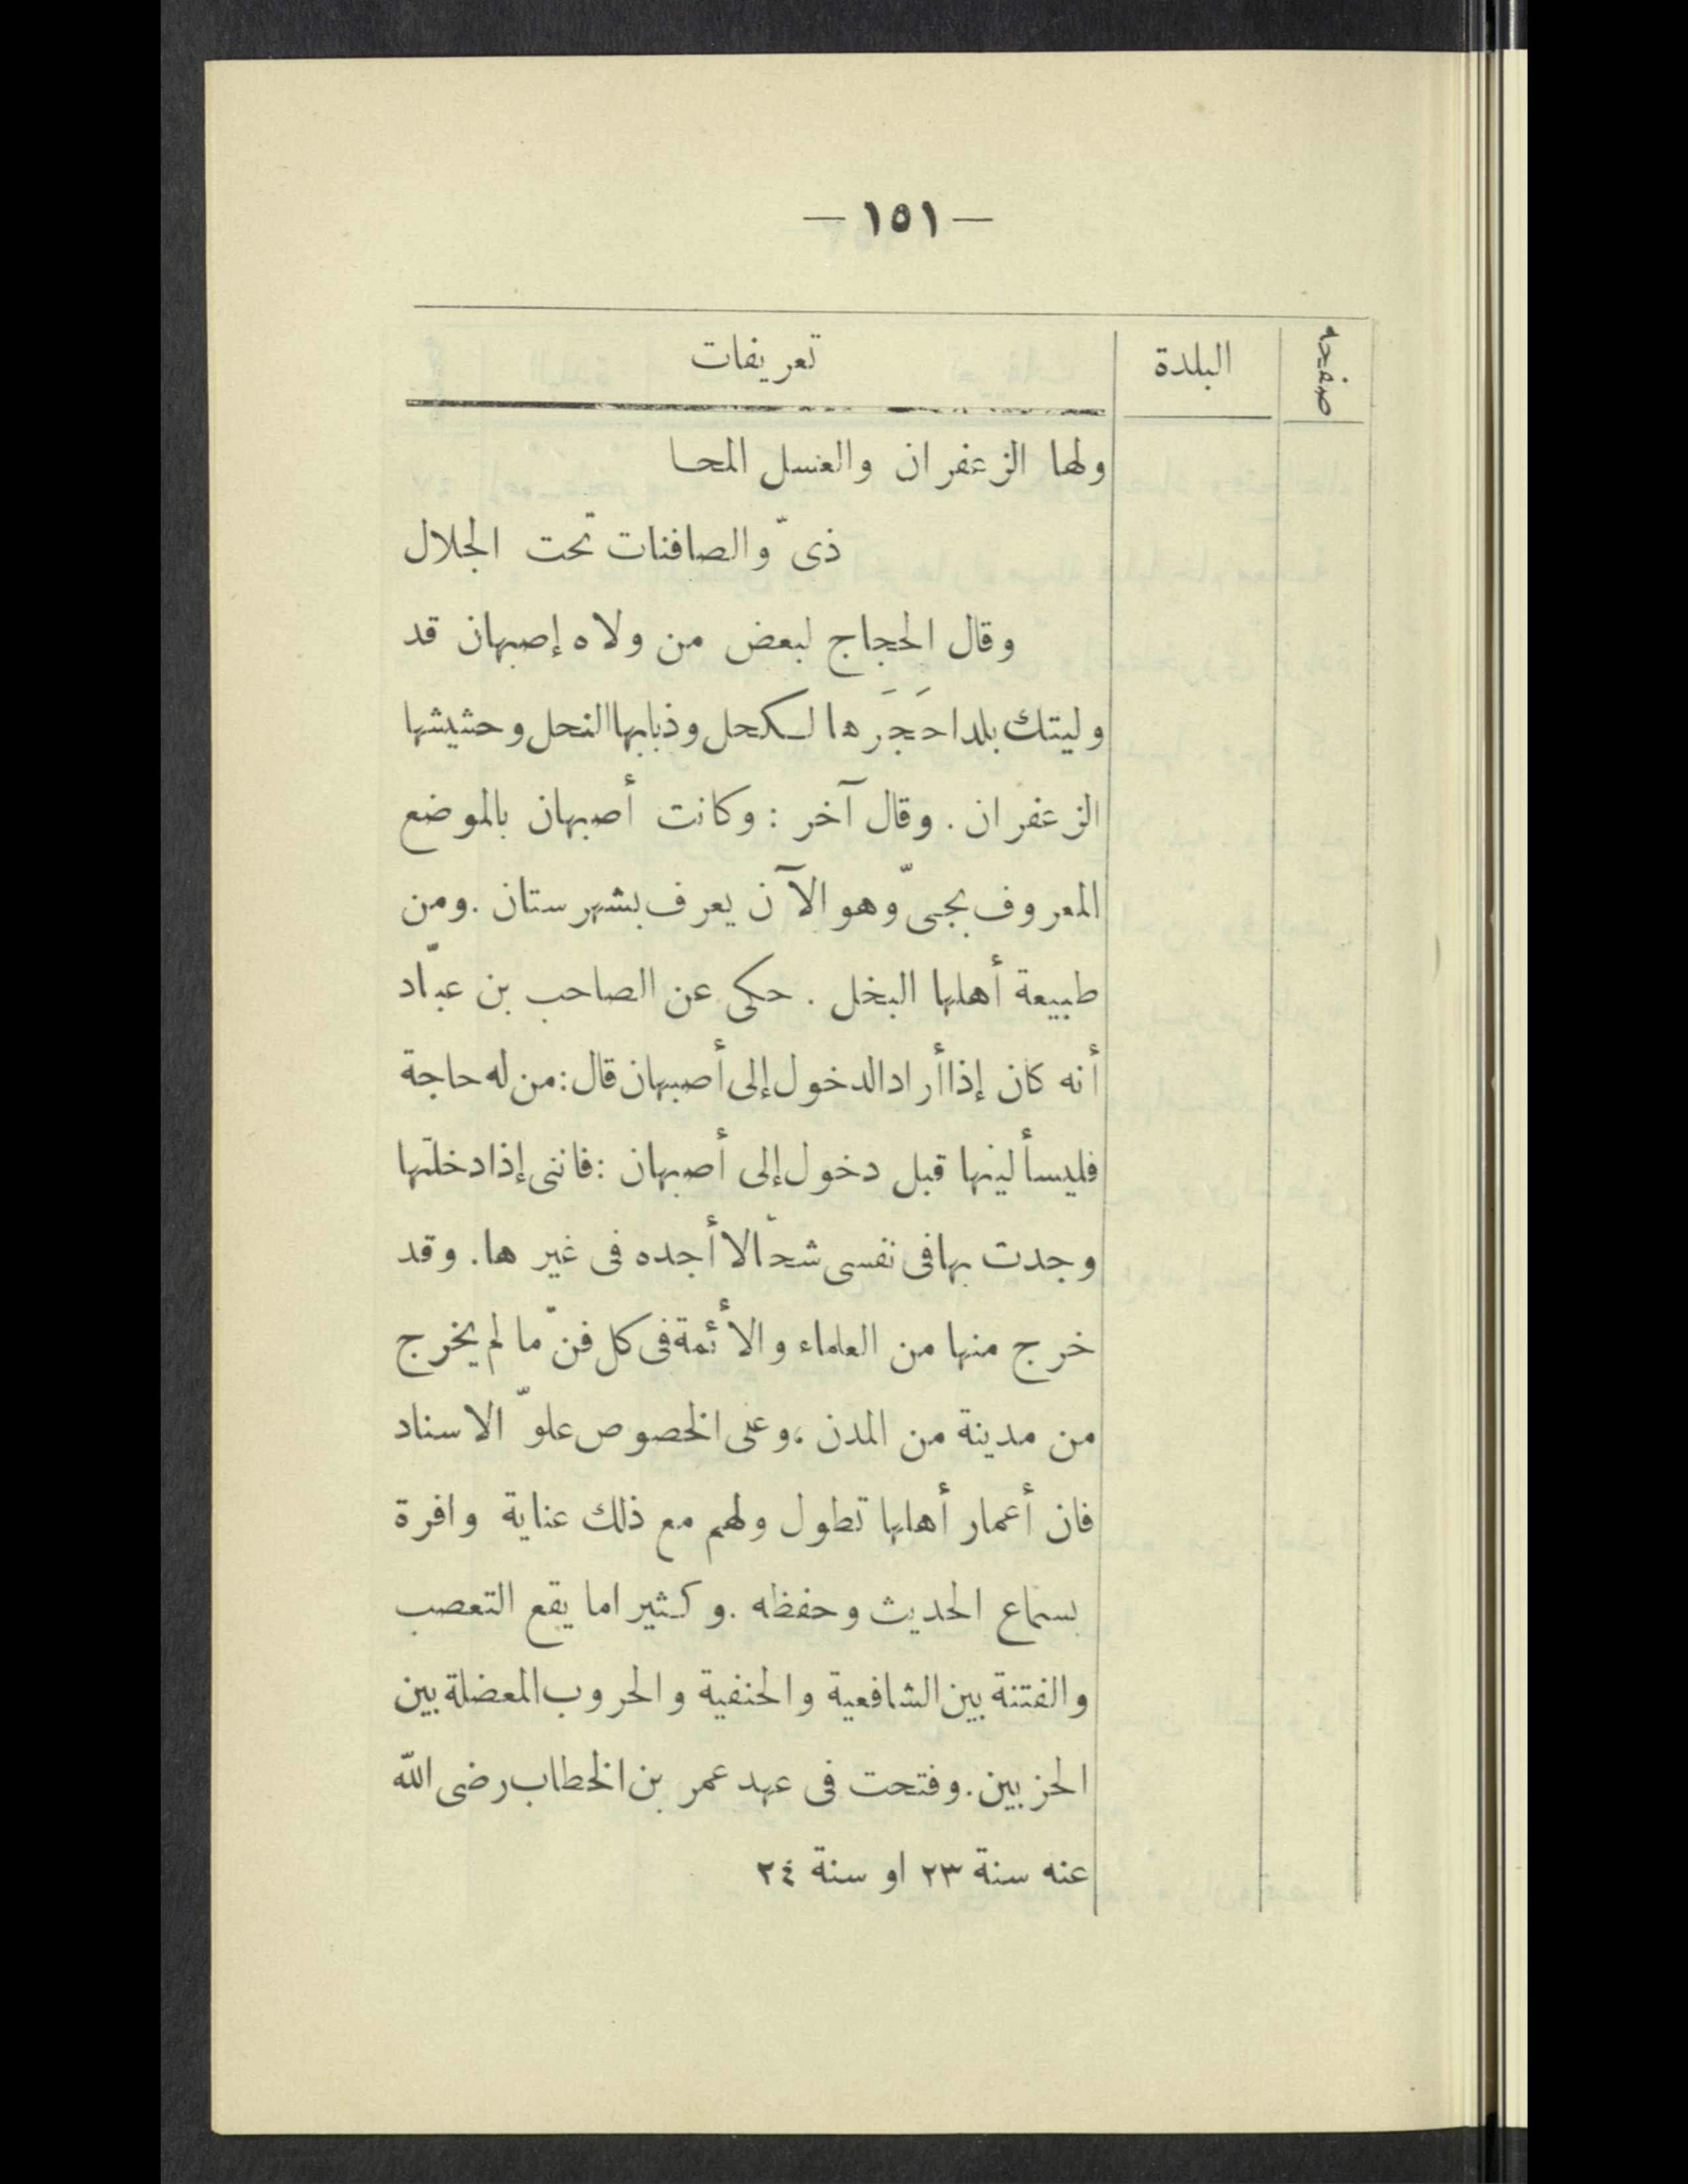 — ١٥١ —
صفحه البلدة تعريفات
ولها الزعفران والعسل المحـا
ذىّ والصافنات تحت الجلال
وقال الحجاج لبعض من ولاه إصبهان قد
وليتك بلدا حَجَرها لكحل وذبابها النحل وحشيشها
الزعفران . وقال آخر : وكانت أصبهان بالموضع
المعروف بجىّ وهو الآن يعرف بشهرستان . ومن
طبيعة أهلها البخل . حكى عن الصاحب بن عبّاد
أنه كان إذا أراد الدخول إلى أصبهان قال : من له حاجة
فليسألينها قبل دخول إلى أصبهان : فاننى إذا دخلتها
وجدت بها فى نفسى شحّا لا أجده فى غيرها . وقد
خرج منها من العلماء والأئمة فى كل فنّ ما لم يخرج
من مدينة من المدن ، وعلى الخصوص علوّ الاسناد
فان أعمار أهلها تطول ولهم مع ذلك عناية وافرة
بسماع الحديث وحفظه . وكثيرا ما يقع التعصب
والفتنة بين الشافعية والحنفية والحروب المعضلة بين
الحزبين . وفتحت فى عهد عمر بن الخطاب رضى الله
عنه سنة ٢٣ او سنة ٢٤